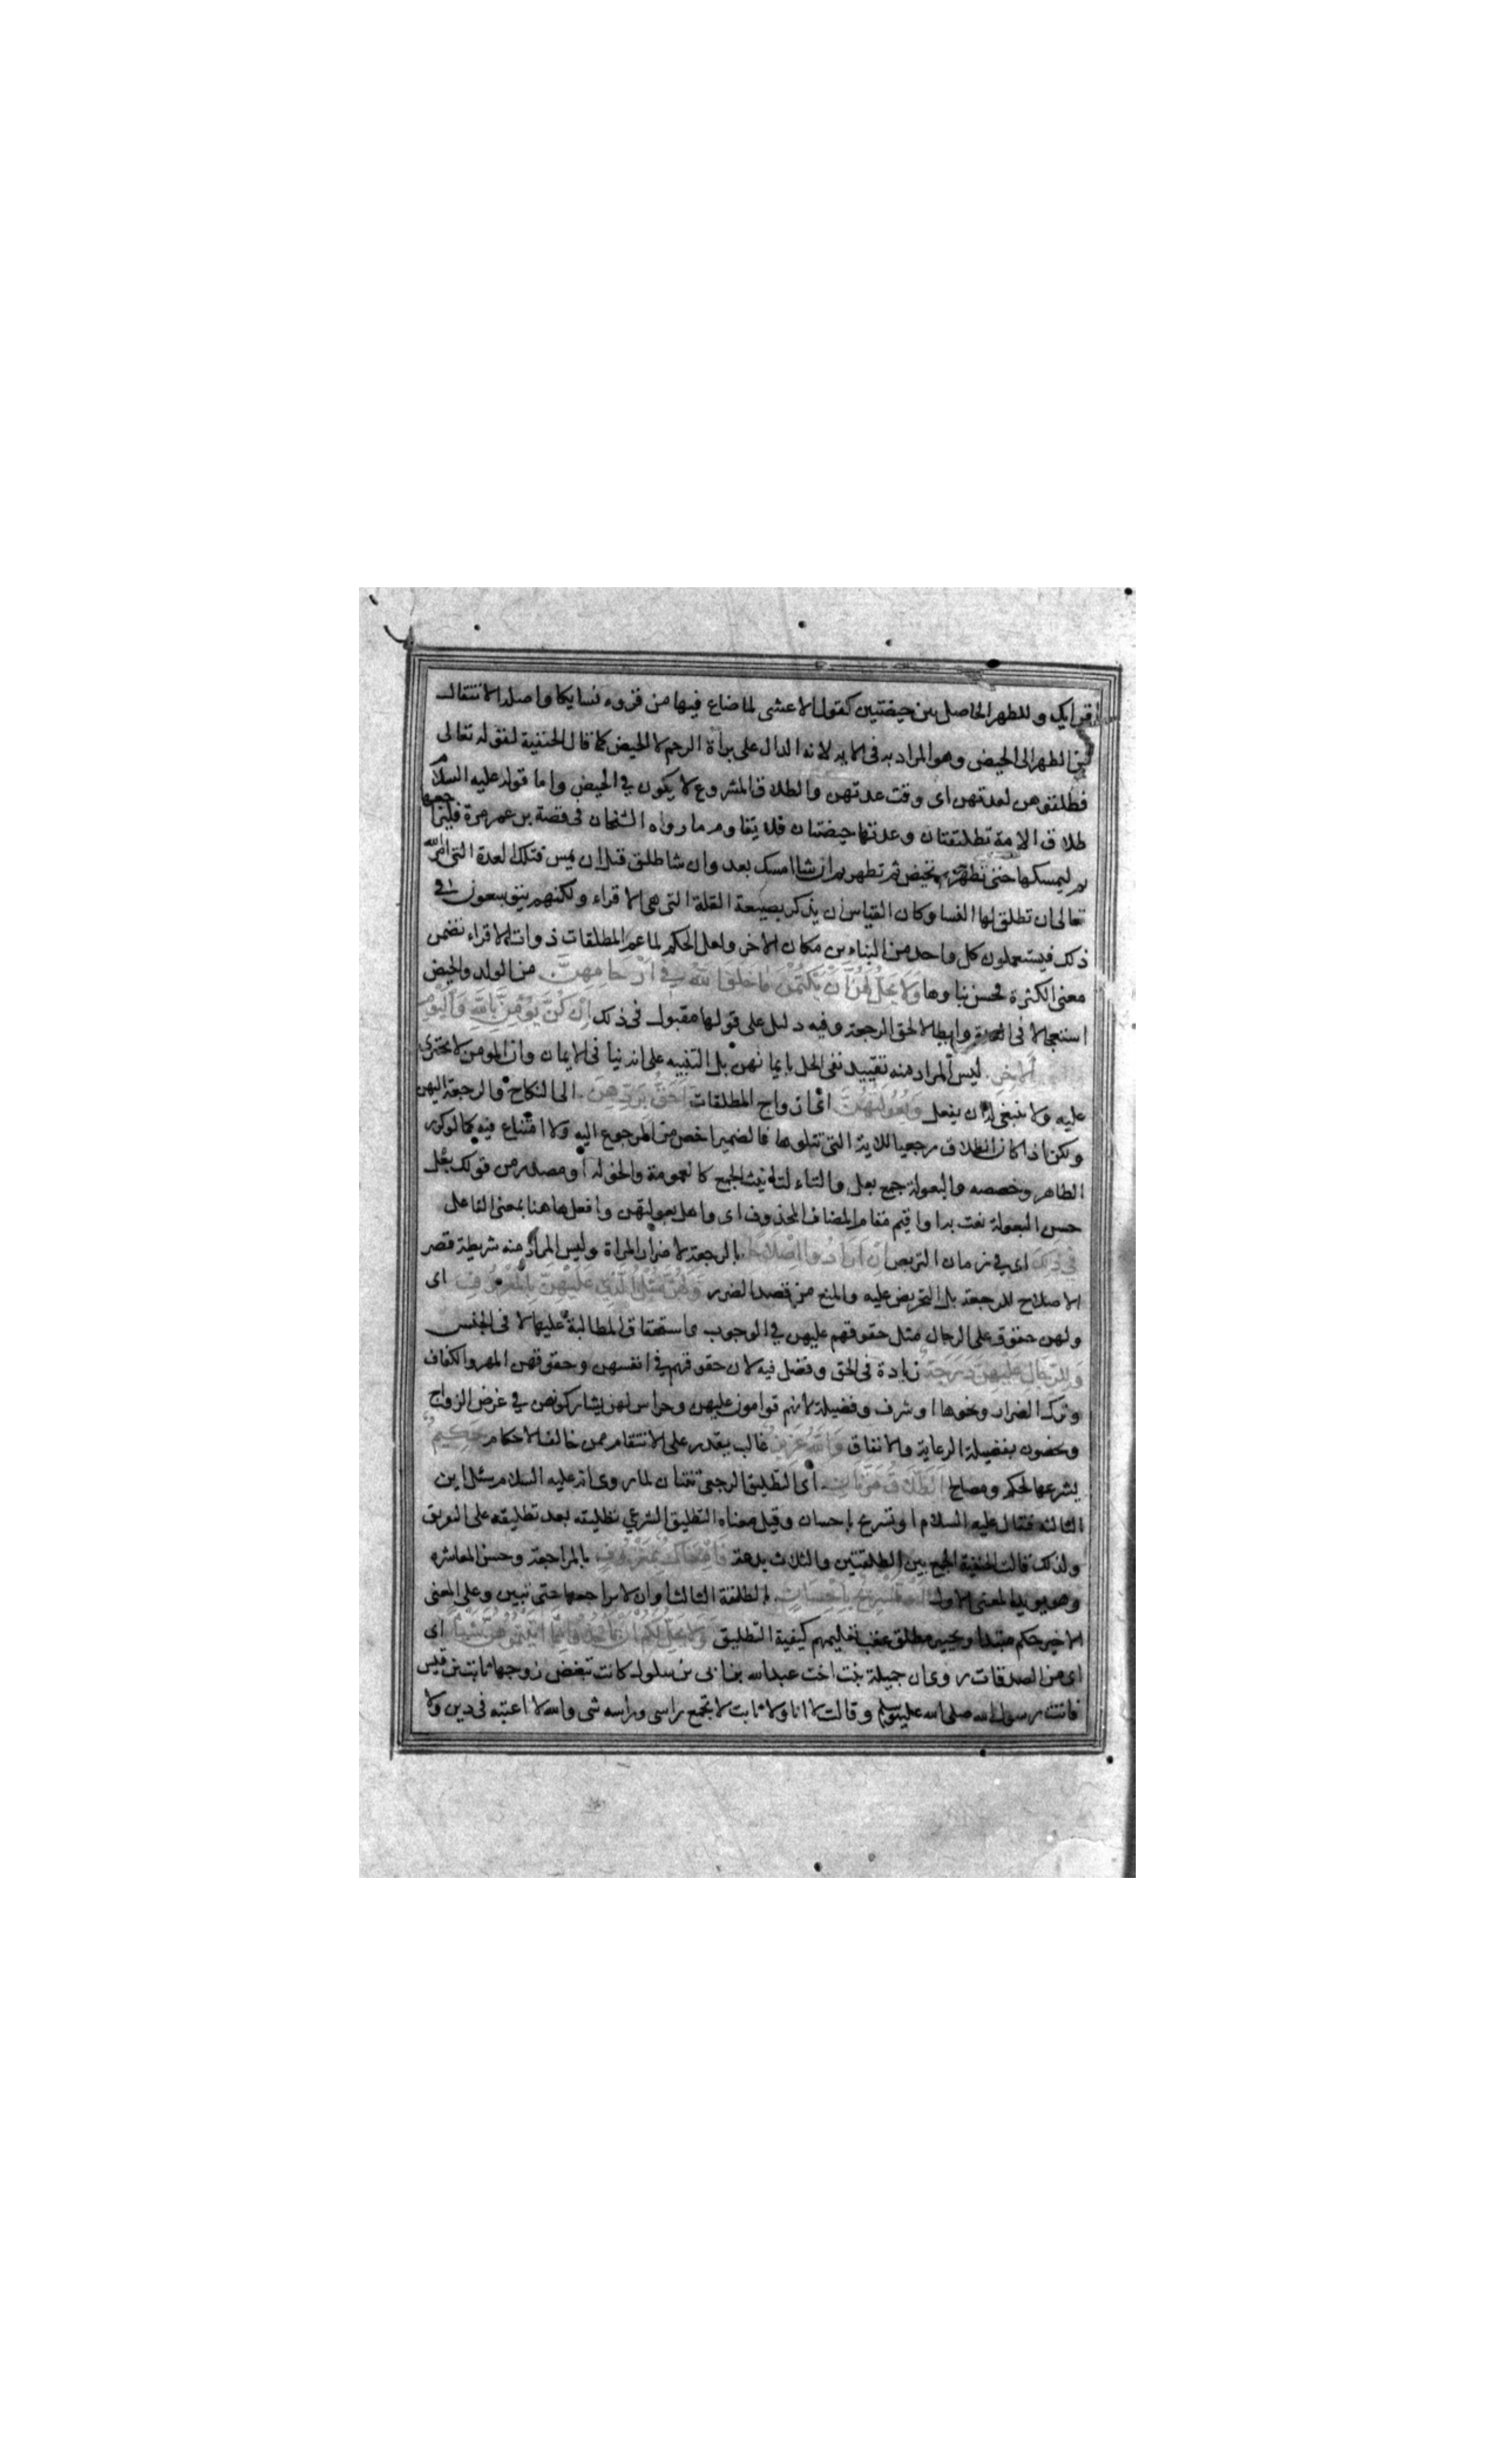 اقرايك وللطهر الحاصل بين حيضتين كقول الاعشى لما ضاع فيها من قروء نسايكا واصله الانتقال
من الطهر الى الحيض وهو المراد به فى الايه لانه الدال على براة الرحم لا الحيض كما قال الحنفية لقوله تعالى
فطلقوهن لعدتهن اى وقت عدتهن والطلاق المشروع لا يكون فى الحيض واما قوله عليه السلام
طلاق الامة تطليقتان وعدتها حيضتان فلا يقاوم ما رواه الشيخان فى قصة بن عمر مره فليراجعها
ثم ليمسكها حتى تطهر ثم تحيض ثم تطهر ثم ان شا امسك بعد وان شا طلق قبل ان يمس فتلك العدة التى امر الله
تعالى ان تطلق لها النسا وكان القياس ان يذكر بصيغة القلة التى هى الاقراء ولكنهم يتوسعون فى
ذلك فيستعملون كل واحد من البناءين مكان الاخر ولعل الحكم لما عم المطلقات ذوات الاقراء تضمن
معنى الكثرة فحسن بناوها وَلَا يَحِلُّ لَهُنَّ اَنْ يَكْتُمْنَ مَا خَلَقَ اللهُ فِى اَرْحَامِهِنَّ من الولد والحيض
استعجالا فى العدة وابطالا لحق الرجعة وفيه دليل على قولها مقبول فى ذلك اِنْ كُنَّ يُؤْمِنَّ بِاللهِ وَالْيَوْمِ
اْلآخِرِ ليس المراد منه تقييد نفى الحل بايمانهن بل التنبيه على انه ينافى الايمان وان المومن لا يجترى
عليه ولا ينبغى له ان يفعل وَبُعُولَتُهُنَّ اى ازواج المطلقات اَحَقُّ بِرَدِّهِنَّ الى النكاح والرجعة اليهن
ولكن اذا كان الطلاق رجعيا للاية التى تتلوها فالضمير اخص من المرجوع اليه ولا امتناع فيه كما لو كرر
الظاهر وخصصه والبعولة جمع بعل والتاء لتانيث الجمع كالعمومة والخولة او مصدر من قولك بعل
حسن البعولة نعت به او اقيم مقام المضاف المحذوف اى واهل بعولتهن وافعل هاهنا بمعنى الفاعل
فِى ذٰلِكَ اى فى زمان التربص اِنْ اَرَادُوا اِصْلَاحًا بالرجعة لا ضرار المراة وليس المراد منه شريطة قصر
الاصلاح للرجعة بل التحريض عليه والمنع من قصد الضرر وَلَهُنَّ مِثْلُ الَّذِى عَلَيْهِنَّ بِالْمَعْرُوفِ اى
ولهن حقوق على الرجال مثل حقوقهم عليهن فى الوجوب واستحقاق المطالبة عليها لا فى الجنس
وَلِلرِّجَالِ عَلَيْهِنَّ دَرَجَةٌ زيادة فى الحق وفضل فيه لان حقوقهم فى انفسهن وحقوقهن المهر والكفاف
وترك الضرار ونحوها او شرف وفضيلة لانهم قوامون عليهن وحراس لهن يشاركونهن فى غرض الزواج
ويخصون بفضيلة الرعاية والانفاق وَاللهُ عَزِيزٌ غالب يقدر على الانتقام ممن خالف الاحكام حَكِيمٌ
يشرعها لحكم ومصالح اَلطَّلَاقُ مَرَّتَانِ اى التطليق الرجعى ثنتان لما روى انه عليه السلام سئل اين
الثالثه فقال عليه السلام او تسريح باحسان وقيل معناه التطليق الشرعى تطليقه بعد تطليقه على التفريق
ولذلك قالت الحنفية الجمع بين الطلقتين والثلاث بدعة فَاِمْسَاكٌ بِمَعْرُوفٍ بالمراجعة وحسن المعاشره
وهو يويد المعنى الاول اَوْ تَسْرِيحٌ بِاِحْسَانٍ بالطلقة الثالثه او ان لا يراجعها حتى تبين وعلى المعنى
الاخير حكم مبتدا وتخيير مطلق عقب تعليمهم كيفية التطليق وَلَا يَحِلُّ لَكُمْ اَنْ تَأْخُذُوا مِمَّا اٰتَيْتُمُوهُنَّ شَيْئًا اى
اى من الصدقات روى ان جميلة بنت اخت عبدالله بن ابى بن سلول كانت تبغض زوجها ثابت بن قيس
فاتت رسول الله صلى الله عليه وسلم وقالت لا انا ولا ثابت لا يجمع راسى وراسه شى والله لا اعتبه فى دين ولا